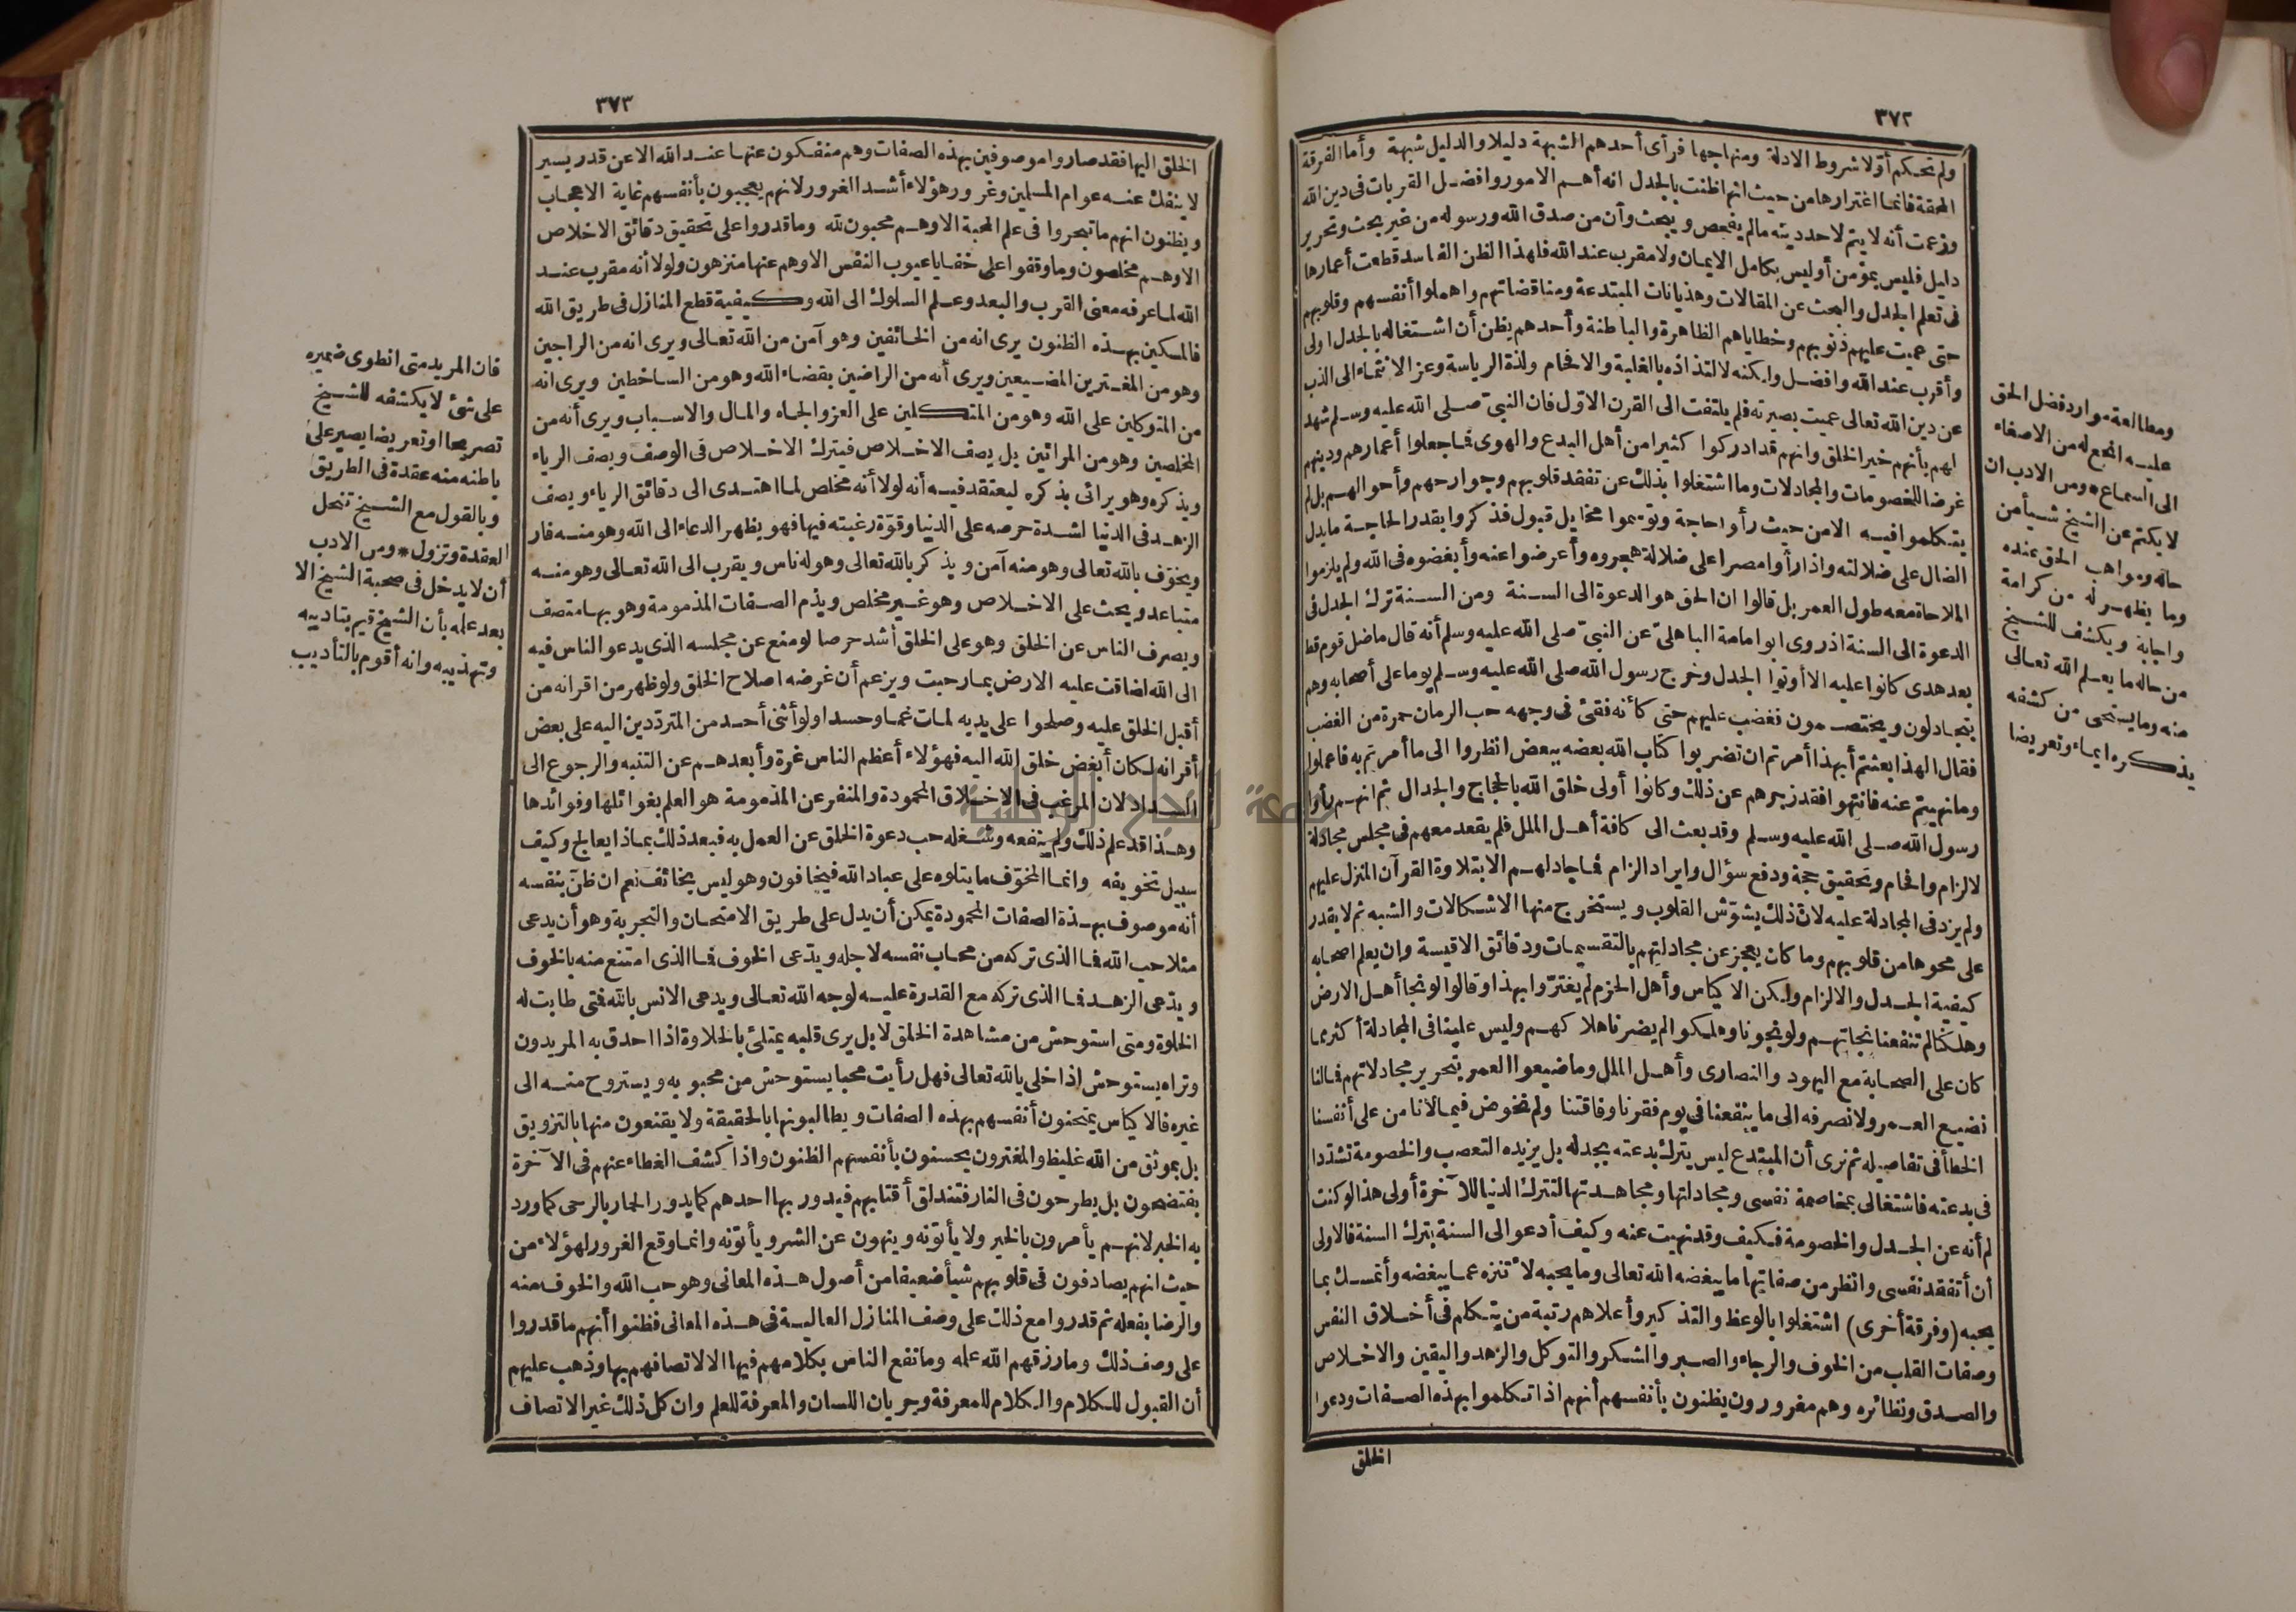 ٣٧٢
ولم تحكم أوّلا شروط الادلة ومنهاجها فرأى أحدهم الشبهة دليلا والدليل شبهة وأما الفرقة
المحقة فانما اغترارها من حيث انها ظنت بالجدل انه أهم الامور وافضل القربات فى دين الله
وزعمت أنه لا يتم لاحد دينه مالم يفحص ويبحث وأن من صدق الله ورسوله من غير بحث وتحرير
دليل فليس بمؤمن أو ليس بكامل الايمان ولا مقرب عند الله فلهذا الظن الفاسد قطعت أعمارها
فى تعلم الجدل والبحث عن المقالات وهذيانات المبتدعة ومناقضاتهم واهملوا أنفسهم وقلوبهم
حتى عميت عليهم ذنوبهم وخطاياهم الظاهرة والباطنة وأحدهم يظن أن اشتغاله بالجدل اولى
وأقرب عند الله وافضل ولكنه لالتذاذه بالغلبة والافحام ولذة الرياسة وعز الانتماء الى الذب
عن دين الله تعالى عميت بصيرته فلم يلتفت الى القرن الاوّل فان النبىّ صلى الله عليه وسلم شهد
لهم بأنهم خير الخلق وانهم قد ادركوا كثيرا من أهل البدع والهوى فما جعلوا أعمارهم ودينهم
غرضا للخصومات والمجادلات وما اشتغلوا بذلك عن تفقد قلوبهم وجوارحهم وأحوالهم بل لم
يتكلموا فيه الا من حيث رأوا حاجة وتوسموا مخايل قبول فذكروا بقدر الحاجة ما يدل
الضال على ضلالته واذا رأوا مصرا على ضلالة هجروه وأعرضوا عنه وأبغضوه فى الله ولم يلزموا
الملاحاة معه طول العمر بل قالوا ان الحق هو الدعوة الى السنة ومن السنة ترك الجدل فى
الدعوة الى السنة اذ روى ابو امامة الباهلىّ عن النبىّ صلى الله عليه وسلم أنه قال ماضل قوم قط
بعد هدى كانوا عليه الا أوتوا الجدل وخرج رسول الله صلى الله عليه وسلم يوما على أصحابه وهم
يتجادلون ويختصمون فغضب عليهم حتى كأنه فقئ فى وجهه حب الرمان حمرة من الغضب
فقال الهذا بعثتم أبهذا أمرتم ان تضربوا كتاب الله بعضه ببعض انظروا الى ما أمرتم به فاعملوا
وما نهيتم عنه فانتهوا فقد زجرهم عن ذلك وكانوا أولى خلق الله بالحجاج والجدال ثم انهم رأوا
رسول الله صلى الله عليه وسلم وقد بعث الى كافة أهل الملل فلم يقعد معهم فى مجلس مجادلة
لالزام وافحام وتحقيق حجة ودفع سؤال وايراد الزام فما جادلهم الا بتلاوة القرآن المنزل عليهم
ولم يزد فى المجادلة عليه لانّ ذلك يشوّش القلوب ويستخرج منها الاشكالات والشبه ثم لا يقدر
على محوها من قلوبهم وما كان يعجز عن مجادلتهم بالتقسيمات ودقائق الاقيسة وان يعلم اصحابه
كيفية الجدل والالزام ولكن الاكياس وأهل الحزم لم يغترّوا بهذا وقالوا لو نجا أهل الارض
وهلكنا لم تنفعنا نجاتهم ولو نجونا وهلكوا لم يضرنا هلاكهم وليس علينا فى المجادلة أكثر مما
كان على الصحابة مع اليهود والنصارى وأهل الملل وما ضيعوا العمر بتحرير مجادلاتهم فما لنا
نضيع العمر ولا نصرفه الى ما ينفعنا فى يوم فقرنا وفاقتنا ولم نخوض فيما لا نامن على أنفسنا
الخطأ فى تفاصيله ثم نرى أن المبتدع ليس يترك بدعته بجدله بل يزيده التعصب والخصومة تشددا
فى بدعته فاشتغالى بمخاصمة نفسى ومجادلتها ومجاهدتها لتترك الدنيا للآخرة أولى هذا لو كنت
لم أنه عن الجدل والخصومة فكيف وقد نهيت عنه وكيف أدعو الى السنة بترك السنة فالاولى
أن أتفقد نفسى وانظر من صفاتها ما يبغضه الله تعالى وما يحبه لأتنزه عما يبغضه وأتمسك بما
يحبه (وفرقة أخرى) اشتغلوا بالوعظ والتذكير وأعلاهم رتبة من يتكلم فى أخلاق النفس
وصفات القلب من الخوف والرجاء والصبر والشكر والتوكل والزهد واليقين والاخلاص
والصدق ونظائره وهم مغرورون يظنون بأنفسهم أنهم اذا تكلموا بهذه الصفات ودعوا
الخلق
ومطالعة موارد فضل الحق
عليه انجع له من الاصغاء
الى السماع * ومن الادب ان
لا يكتم عن الشيخ شيأ من
حاله ومواهب الحق عنده
وما يظهر له من كرامة
واجابة ويكشف للشيخ
من حاله ما يعلم الله تعالى
منه وما يستحى من كشفه
يذكره ايماء وتعريضا
٣٧٣
الخلق اليها فقد صاروا موصوفين بهذه الصفات وهم منفكون عنها عند الله الا عن قدر يسير
لا ينفك عنه عوام المسلمين وغرور هؤلاء أشد الغرور لانهم يعجبون بأنفسهم غاية الاعجاب
ويظنون انهم ما تبحروا فى علم المحبة الا وهم محبون لله وما قدروا على تحقيق دقائق الاخلاص
الا وهم مخلصون وما وقفوا على خفايا عيوب النفس الا وهم عنها منزهون ولولا أنه مقرب عند
الله لما عرفه معنى القرب والبعد وعلم السلوك الى الله وكيفية قطع المنازل فى طريق الله
فالمسكين بهذه الظنون يرى انه من الخائفين وهو آمن من الله تعالى ويرى انه من الراجين
وهو من المغترين المضيعين ويرى أنه من الراضين بقضاء الله وهو من الساخطين ويرى انه
من المتوكلين على الله وهو من المتكلين على العز والجاه والمال والاسباب ويرى أنه من
المخلصين وهو من المرائين بل يصف الاخلاص فيترك الاخلاص فى الوصف ويصف الرياء
ويذكره وهو يرائى بذكره ليعتقد فيه أنه لولا أنه مخلص لما اهتدى الى دقائق الرياء ويصف
الزهد فى الدنيا لشدة حرصه على الدنيا وقوّة رغبته فيها فهو يظهر الدعاء الى الله وهو منه فار
ويخوّف بالله تعالى وهو منه آمن ويذكر بالله تعالى وهو له ناس ويقرب الى الله تعالى وهو منه
متباعد ويحث على الاخلاص وهو غير مخلص ويذم الصفات المذمومة وهو بها متصف
ويصرف الناس عن الخلق وهو على الخلق أشد حرصا لو منع عن مجلسه الذى يدعو الناس فيه
الى الله لضاقت عليه الارض بما رحبت ويزعم أن غرضه اصلاح الخلق ولو ظهر من اقرانه من
أقبل الخلق عليه وصلحوا على يديه لمات غما وحسدا ولو أثنى أحد من المتردّدين اليه على بعض
أقرانه لكان أبغض خلق الله اليه فهؤلاء أعظم الناس غرة وأبعدهم عن التنبه والرجوع الى
السداد لان المرغب فى الاخلاق المحمودة والمنفر عن المذمومة هو العلم بغوائلها وفوائدها
وهذا قد علم ذلك ولم ينفعه وشغله حب دعوة الخلق عن العمل به فبعد ذلك بماذا يعالج وكيف
سبيل تخويفه وانما المخوّف ما يتلوه على عباد الله فيخافون وهو ليس بخائف نعم ان ظنّ بنفسه
أنه موصوف بهذة الصفات المحمودة يمكن أن يدل على طريق الامتحان والتجربة وهو أن يدعى
مثلا حب الله فما الذى تركه من محاب نفسه لاجله ويدّعى الخوف فما الذى امتنع منه بالخوف
ويدّعى الزهد فما الذى تركه مع القدرة عليه لوجه الله تعالى ويدعى الانس بالله فتى طابت له
الخلوة ومتى استوحش من مشاهدة الخلق لا بل يرى قلبه يمتلئ بالحلاوة اذا احدق به المريدون
وتراه يستوحش اذا خلى بالله تعالى فهل رأيت محبا يستوحش من محبوبه ويستروح منه الى
غيره فالاكياس يمتحنون أنفسهم بهذه الصفات ويطالبونها بالحقيقة ولا يقنعون منها بالتزويق
بل بموثق من الله غليظ والمغترون يحسنون بأنفسهم الظنون واذا كشف الغطاء عنهم فى الآخرة
يفتضحون بل يطرحون فى النار فتندلق أقتابهم فيدور بها احدهم كما يدور الحمار بالرحى كما ورد
به الخبر لانهم يأمرون بالخير ولا يأتونه وينهون عن الشر ويأتونه وانما وقع الغرور لهؤلاء من
حيث انهم يصادفون فى قلوبهم شيأ ضعيفا من أصول هذه المعانى وهو حب الله والخوف منه
والرضا بفعله ثم قدروا مع ذلك على وصف المنازل العالية فى هذه المعانى فظنوا أنهم ما قدروا
على وصف ذلك وما رزقهم الله علمه وما نفع الناس بكلامهم فيها الا لاتصافهم بها وذهب عليهم
أن القبول للكلام والكلام للمعرفة وجريان اللسان والمعرفة للعلم وان كل ذلك غير الاتصاف
فان المريد متى انطوى ضميره
على شئ لا يكشفه للشيخ
تصريحا او تعريضا يصير على
باطنه منه عقدة فى الطريق
وبالقول مع الشيخ تنحل
العقدة وتزول * ومن الادب
أن لا يدخل فى صحبة الشيخ الا
بعد علمه بأن الشيخ قيم بتاديبه
وتهذيبه وانه أقوم بالتأديب
جامعة النجاح الوطنية